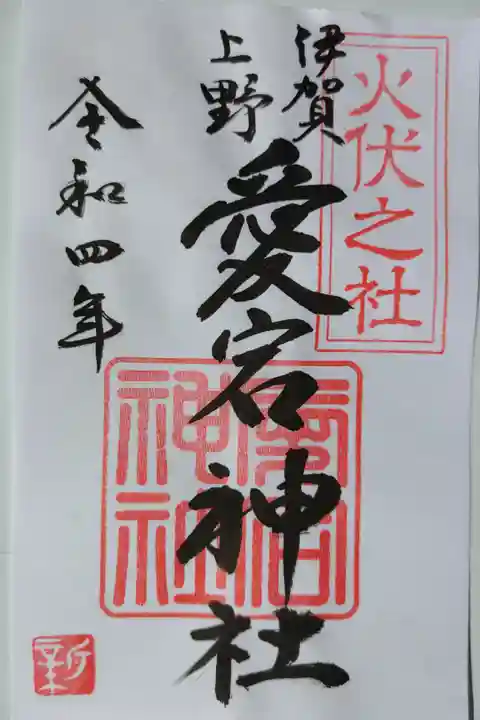 火伏之社
伊賀
上野
愛宕神社
愛宕
神社
令和四年
新